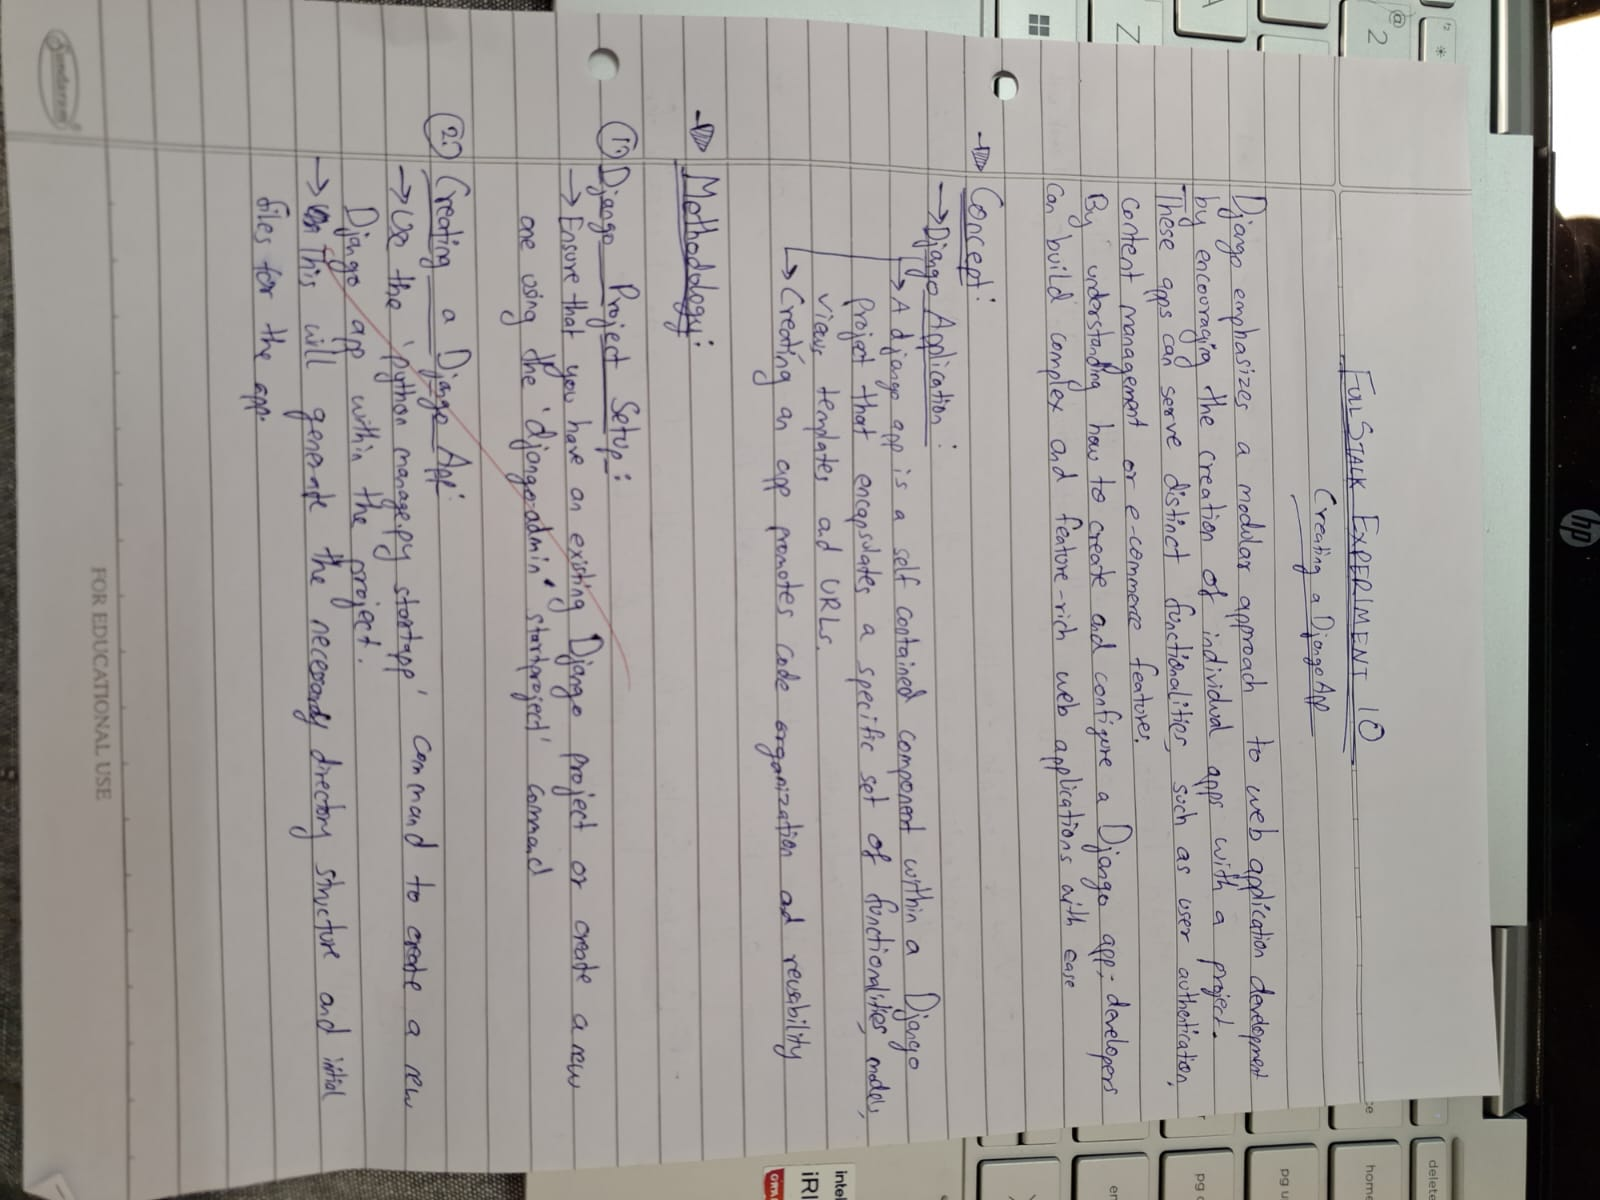 FULL STALK EXPERIMENT 10
Creating a Django App
Django emphasizes a modular approach to web application development
by encouraging the creation of individual apps with a project.
These apps can serve distinct functionalities, such as user authentication,
content management or e-commerce features.
By understanding how to create and configure a Django app, developers
can build complex and feature-rich web applications with ease
Concept:
→ Django Application:
↳ A django app is a self contained component within a Django
project that encapsulates a specific set of functionalities, models,
views, templates ad URLs.
↳ Creating an app promotes code organization ad reusability
Methodology:
① Django Project Setup:
→ Ensure that you have an existing Django project or create a new
one using the 'django-admin' startproject' command
② Creating a Django App:
→ Use the 'python manage.py startapp' command to create a new
Django app within the project.
→ This will generate the necessary directory structure and initial
files for the app.
Sundaram
FOR EDUCATIONAL USE
hp
f2
@
2
A
Z
delete
home
pg u
intel
iRI